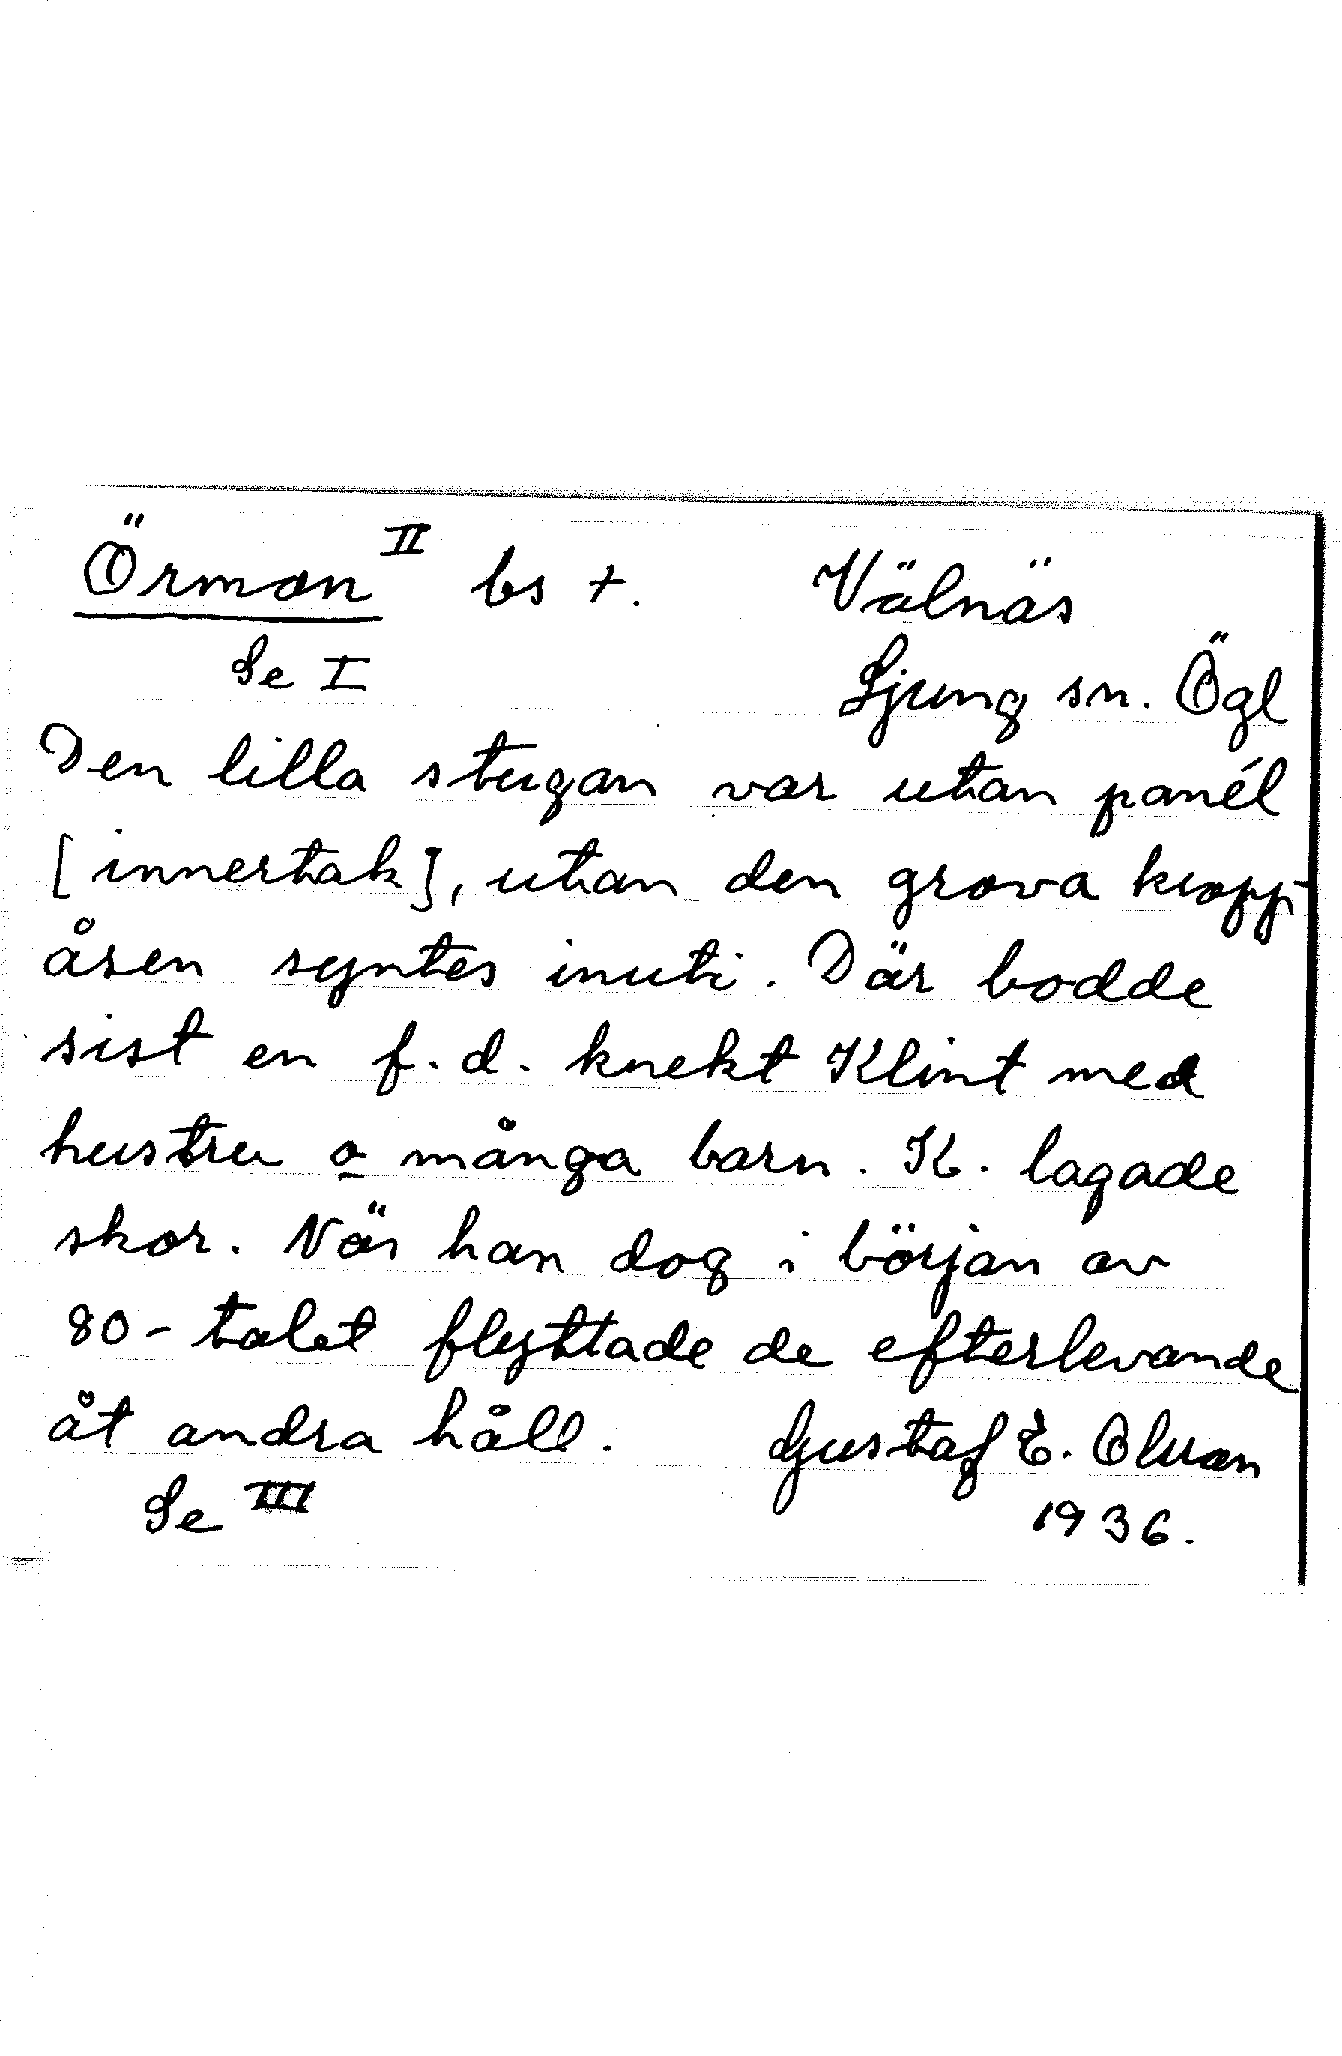 Örman II bs +. Välnäs
Se I Ljung sn. Ögl
Den lilla stugan var utan panél
[innertak], utan den grova kropp-
åsen syntes inuti. Där bodde
sist en f.d. knekt Klint med
hustru o många barn. K. lagade
skor. När han dog i början av
80-talet flyttade de efterlevande
åt andra håll. Gustaf E. Olsson
Se III 1936.